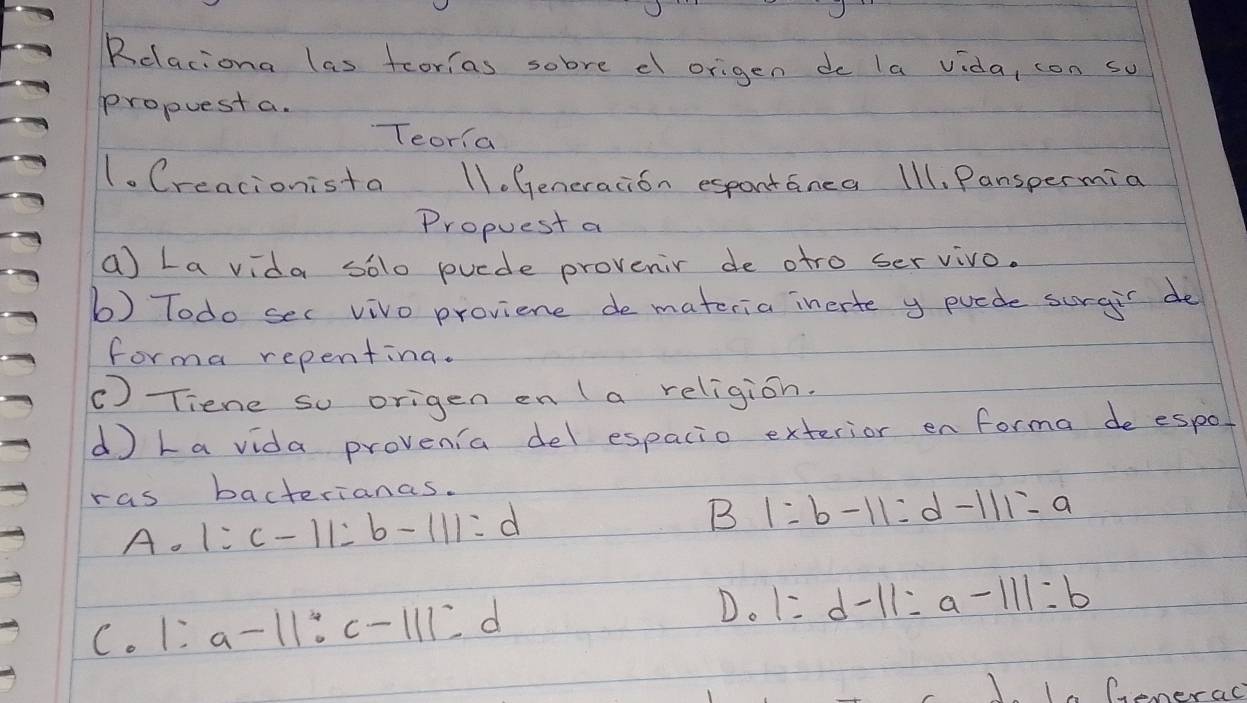 Relaciona las teorías sobre el origen de la vida, con su
propuesta.
Teoría
I. Creacionista II. Generación espontánea III. Panspermia
Propuesta
a) La vida sólo puede provenir de otro ser vivo.
b) Todo ser vivo proviene de materia inerte y puede surgir de
forma repentina.
c) Tiene su origen en la religión.
d) La vida provenía del espacio exterior en forma de espo-
ras bacterianas.
A. I: c - II: b - III: d
B I: b - II: d - III: a
C. I: a - II: c - III: d
D. I: d - II: a - III: b